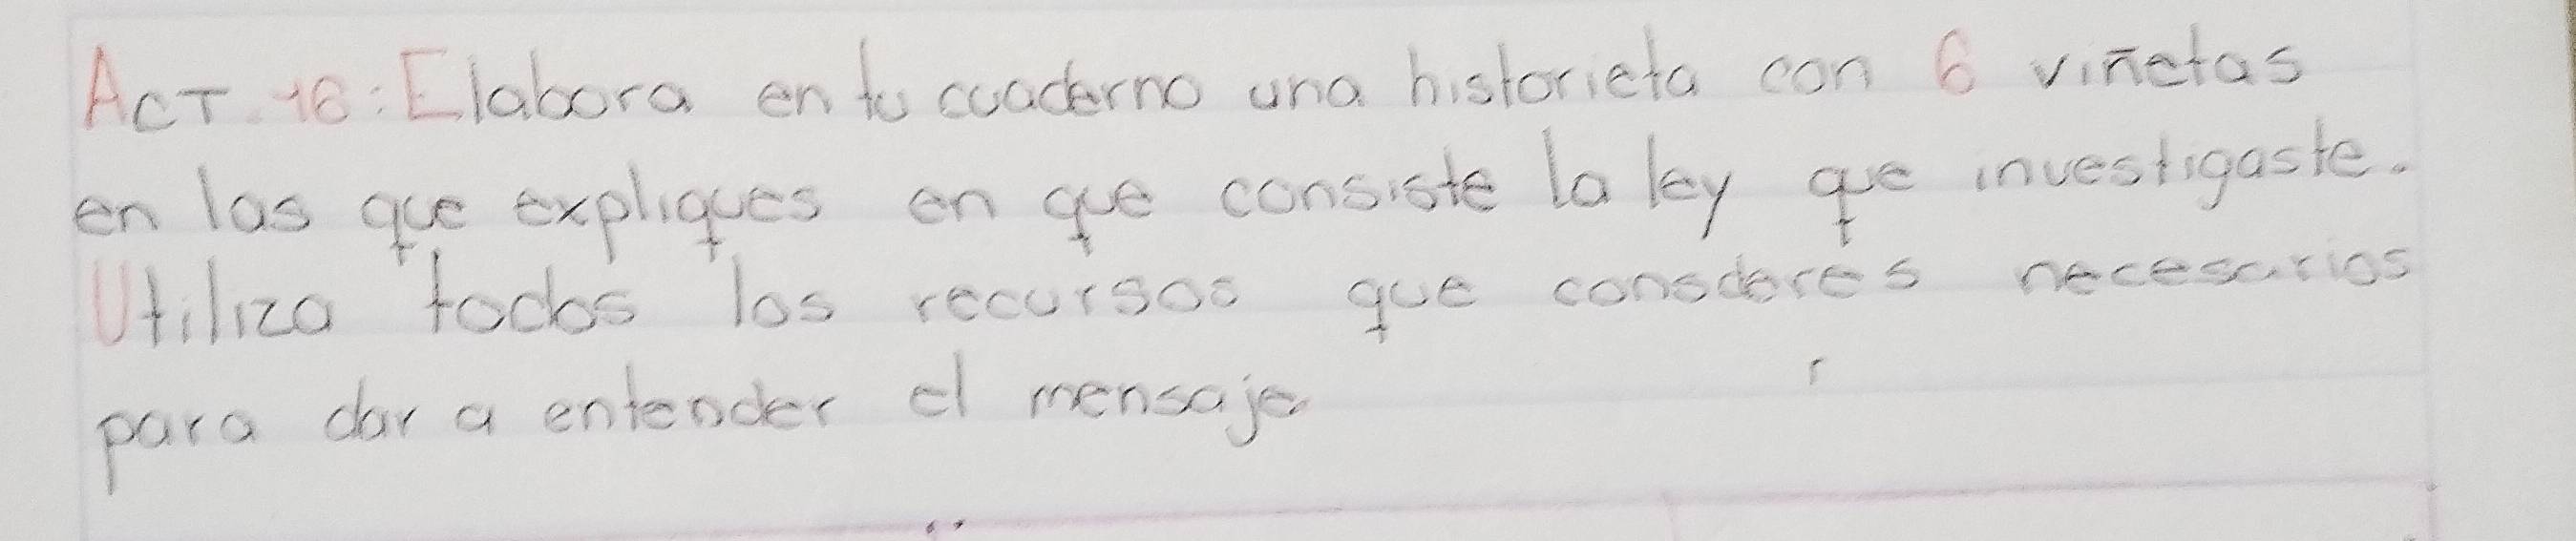 ACT. 16: Elabora en tu cuaderno una historieta con 6 viñetas
en las que expliques en que consiste la ley que investigaste.
Utiliza todos los recursos que consderes necesarios
para dar a entender el mensaje